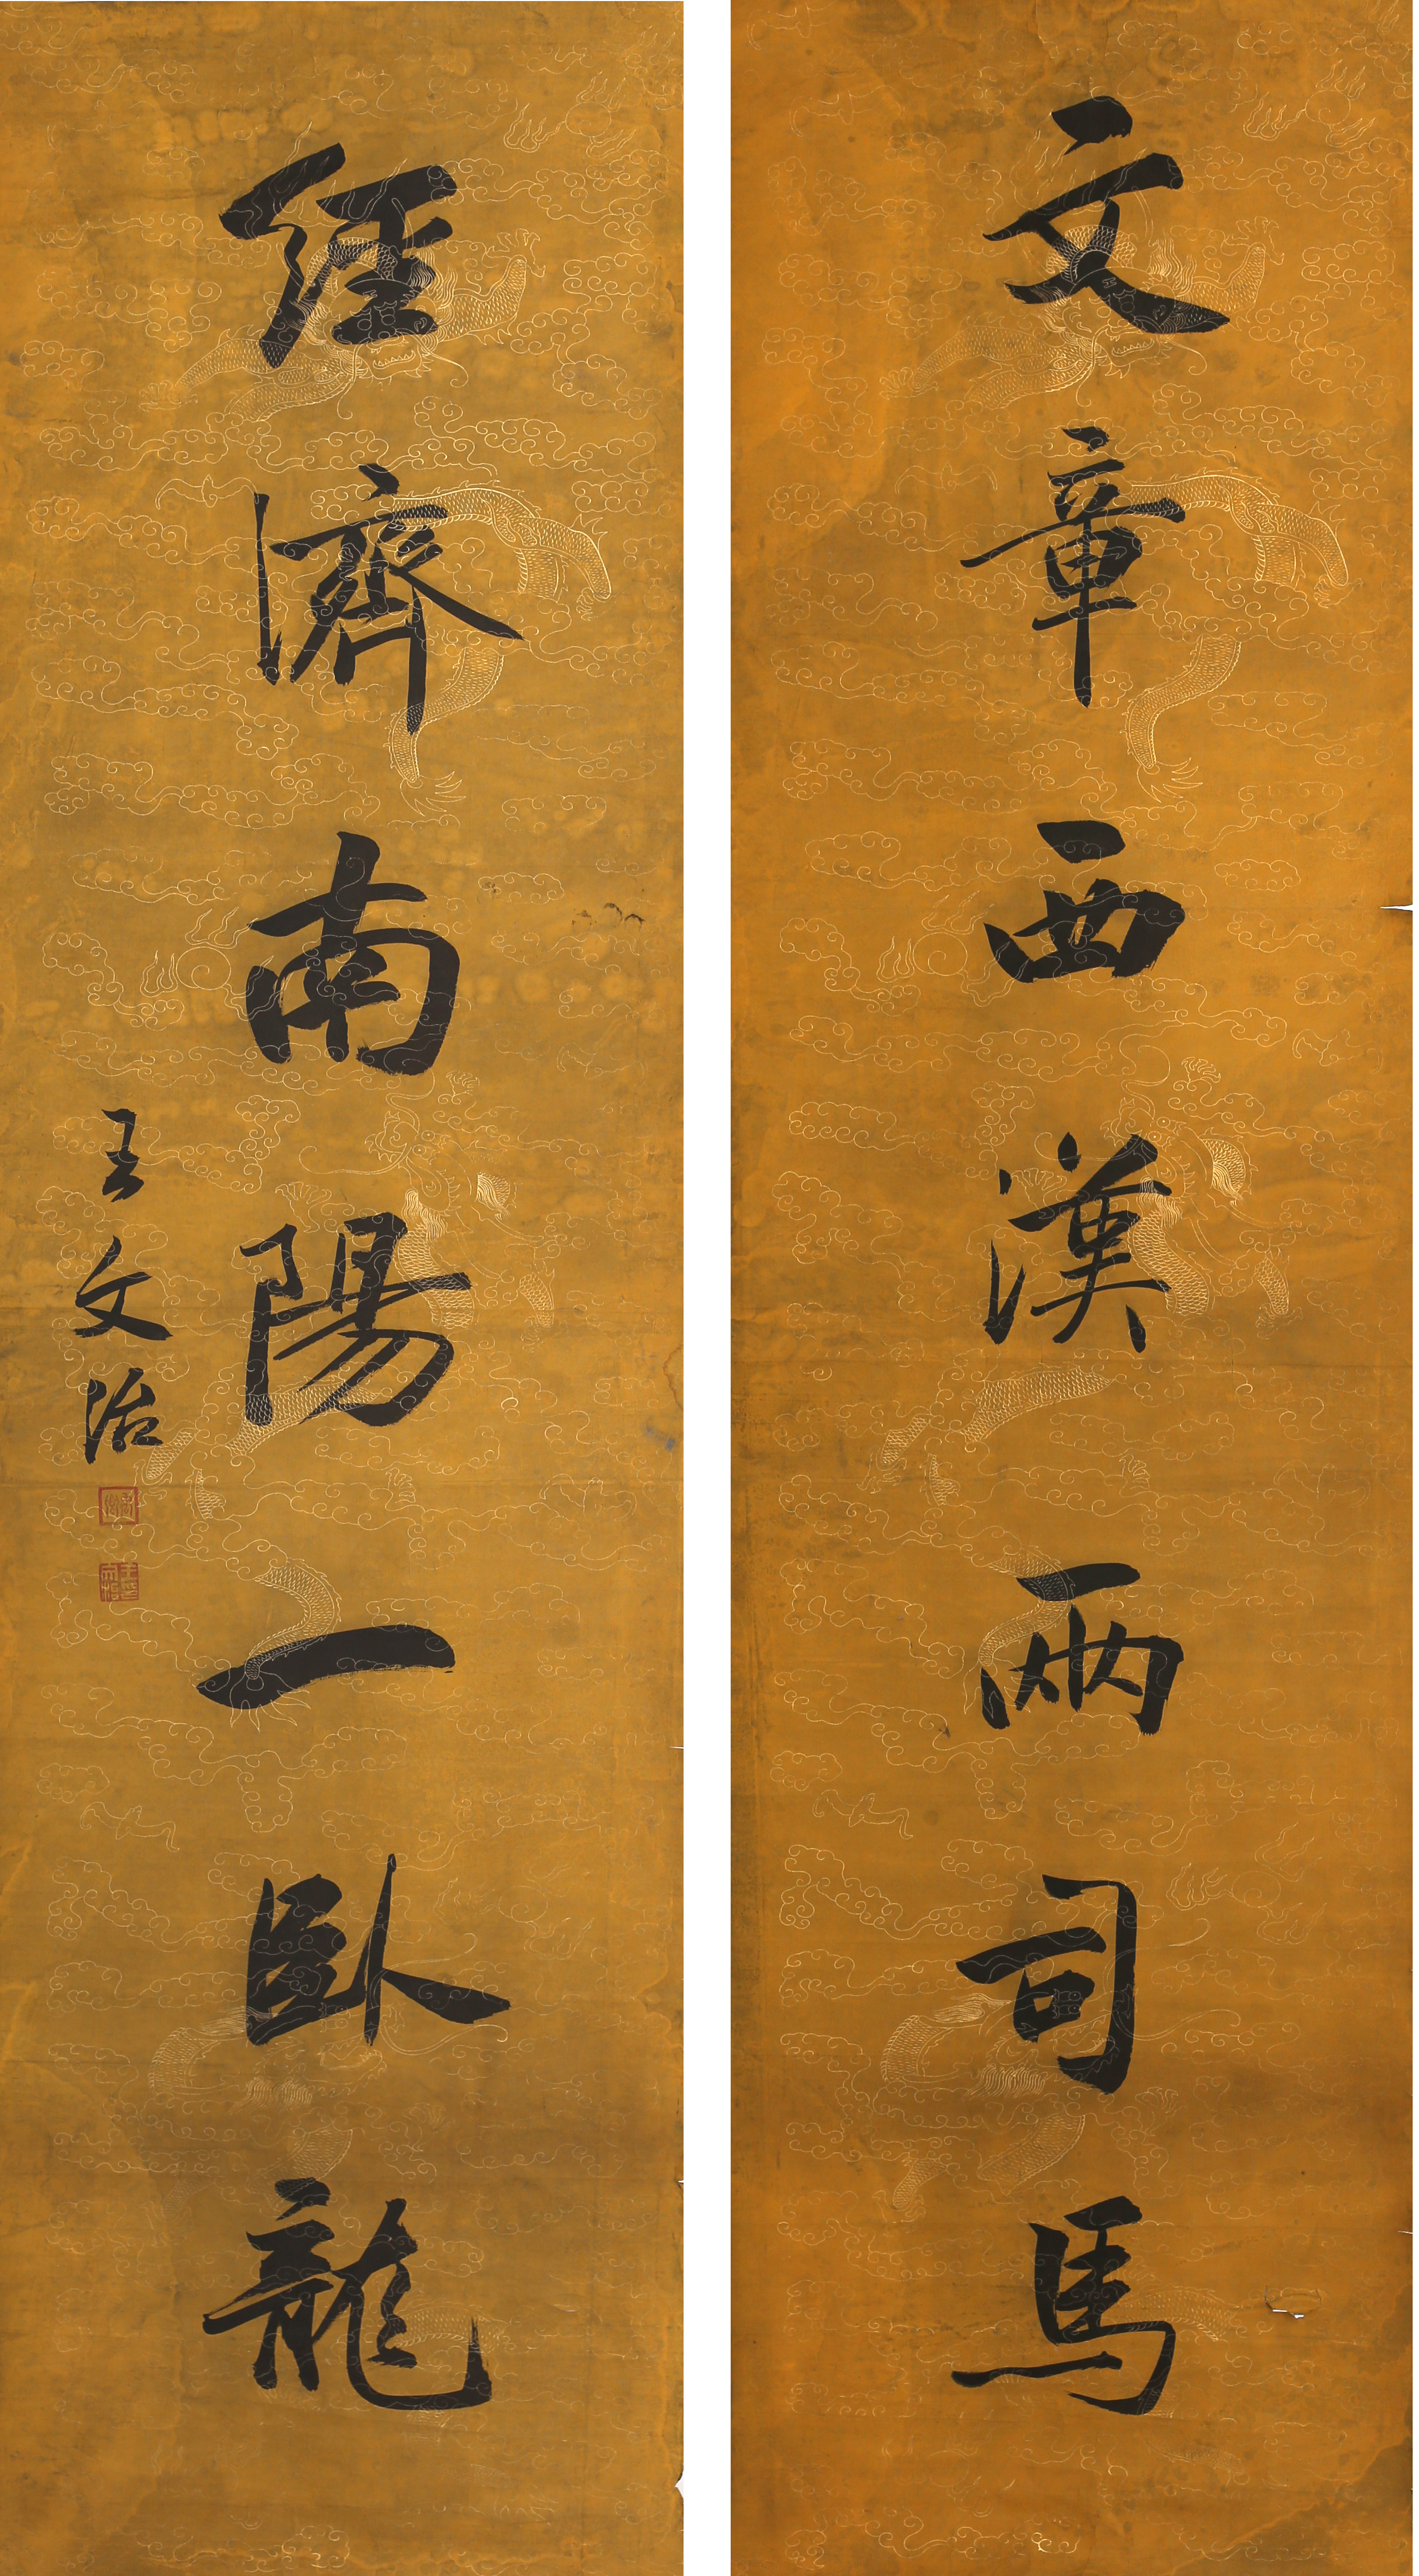 文章西漢兩司馬
經濟南陽一臥龍
王文治